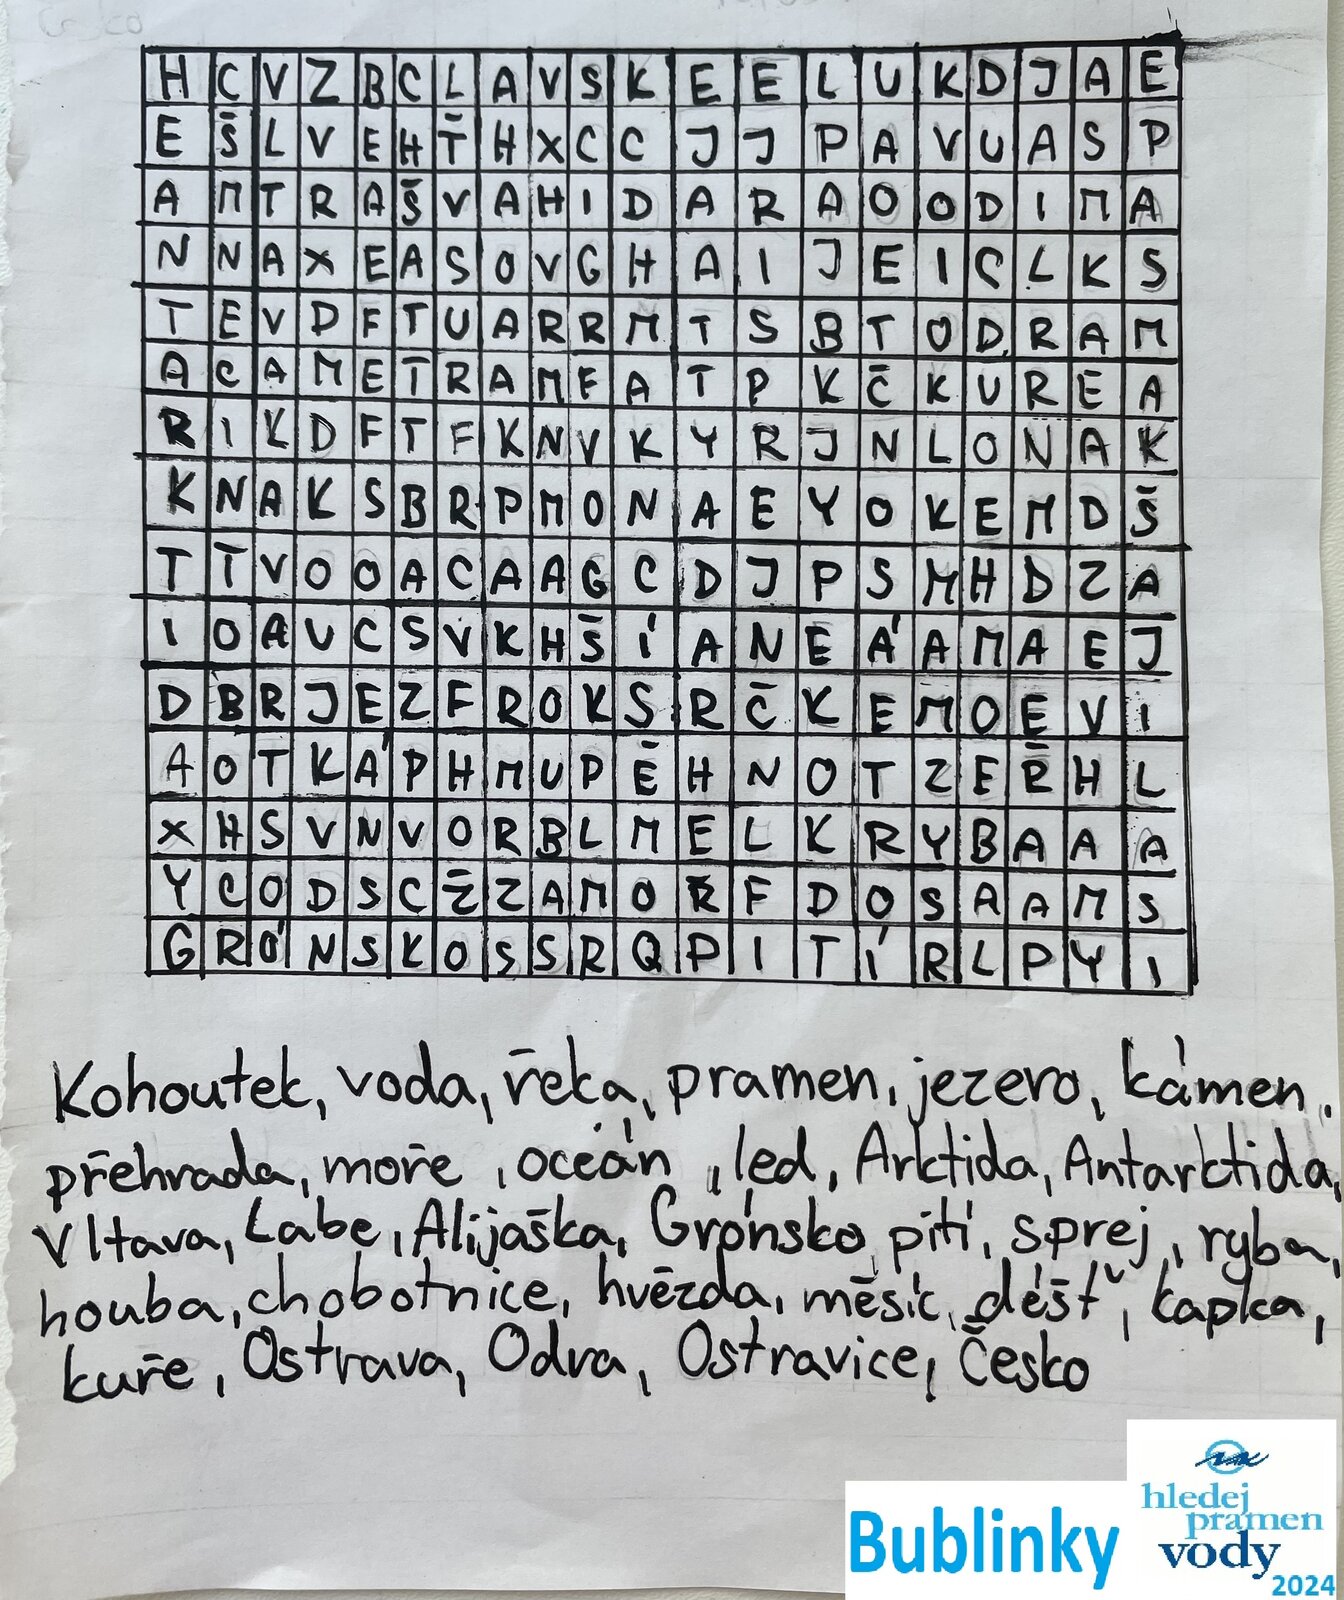 H C V Z B C L A V S K E E L U K D J A E
E Š L V E H Ť H X C C J J P A V U A S P
A M T R A Š V A H I D A R A O O D I M A
N N A X E A S O V G H A I J E I C L K S
T E V D F T U A R R M T S B T O D R A M
A C A M E T R A M F A T P K Č K U R E A
R I K D F T F K N V K Y R J N L O N A K
K N A K S B R P M O N A E Y O K E M D Š
T T V O O A C A A G C D J P S M H D Z A
I O A U C S V K H Š Í A N E Á A M A E J
D B R J E Z F R O K S R Č K E M O E V I
A O T K Á P H M U P Ě H N O T Z E Ř H L
X H S V N V O R B L M E L K R Y B A A A
Y C O D S C Ž Z A M O Ř F D O S A A M S
G R Ó N S K O S S R Q P I T Í R L P Y I
Kohoutek, voda, řeka, pramen, jezero, kámen,
přehrada, moře, oceán, led, Arktida, Antarktida,
Vltava, Labe, Alijaška, Grónsko pití, sprej, ryba,
houba, chobotnice, hvězda, měsíc, déšť, kapka,
kuře, Ostrava, Odra, Ostravice, Česko
Bublinky
hledej
pramen
vody
2024